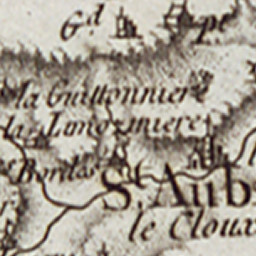 G.d
la Guittonniere
la Limozniere
Bordas
St. Aub
le Cloux